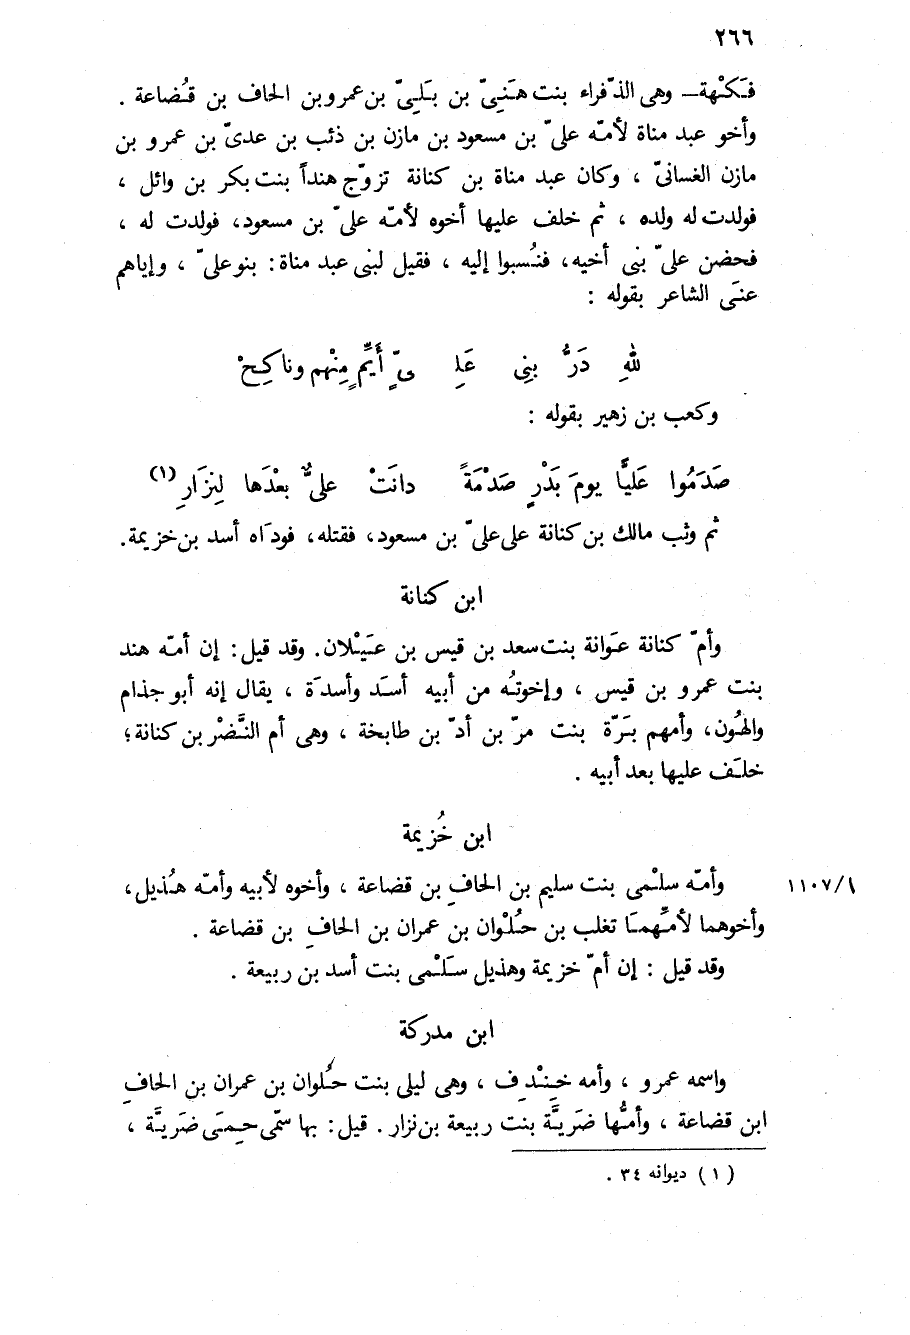 ٢٦٦
فَكْهة – وهى الذّفراء بنت هَنِىّ بن بَلِىّ بن عمرو بن الحاف بن قُضاعة .
وأخو عبد مناة لأمّه علىّ بن مسعود بن مازن بن ذئب بن عدىّ بن عمرو بن
مازن الغسانىّ ، وكان عبد مناة بن كنانة تزوّج هنداً بنت بكر بن وائل ،
فولدت له ولده ، ثم خلف عليها أخوه لأمّه علىّ بن مسعود، فولدت له ،
فحضن علىّ بنى أخيه، فنُسبوا إليه ، فقيل لبنى عبد مناة: بنو علىّ ، وإياهم
عنَى الشاعر بقوله :
للهِ دَرُّ بنِى عَلِـىٍّ أَيِّمٍ مِنْهم وناكِحْ
وكعب بن زهير بقوله :
صَدَمُوا عَليًّا يومَ بَدْرٍ صَدْمَةً دانَتْ علىٌّ بعْدَها لِنزَارِ (١)
ثم وثب مالك بن كنانة على علىّ بن مسعود، فقتله، فودَاه أسد بن خزيمة.
ابن كنانة
وأمّ كنانة عَوانة بنت سعد بن قيس بن عَيْلان. وقد قيل: إن أمّه هند
بنت عمرو بن قيس ، وإخوتُه من أبيه أسَد وأسدَة ، يقال إنه أبو جذام
والهُون، وأمهم بَرّة بنت مرّ بن أدّ بن طابخة ، وهى أم النَّضْر بن كنانة؛
خلَف عليها بعد أبيه .
ابن خُزيمة
وأمّه سلْمى بنت سليم بن الحافِ بن قضاعة ، وأخوه لأبيه وأمّه هُذيل، ١١٠٧/١
وأخوهما لأمِّهمَا تغلب بن حُلْوان بن عمران بن الحافِ بن قضاعة .
وقد قيل : إن أمّ خزيمة وهذيل سَلْمى بنت أسد بن ربيعة .
ابن مدركة
واسمه عمرو ، وأمه خِنْدِف ، وهى ليلى بنت حُلوان بن عمران بن الحافِ
ابن قضاعة ، وأمُّها ضَرِيَّة بنت ربيعة بن نزار. قيل: بها سمّى حِمَى ضَرِيَّة ،
(١) ديوانه ٣٤ .